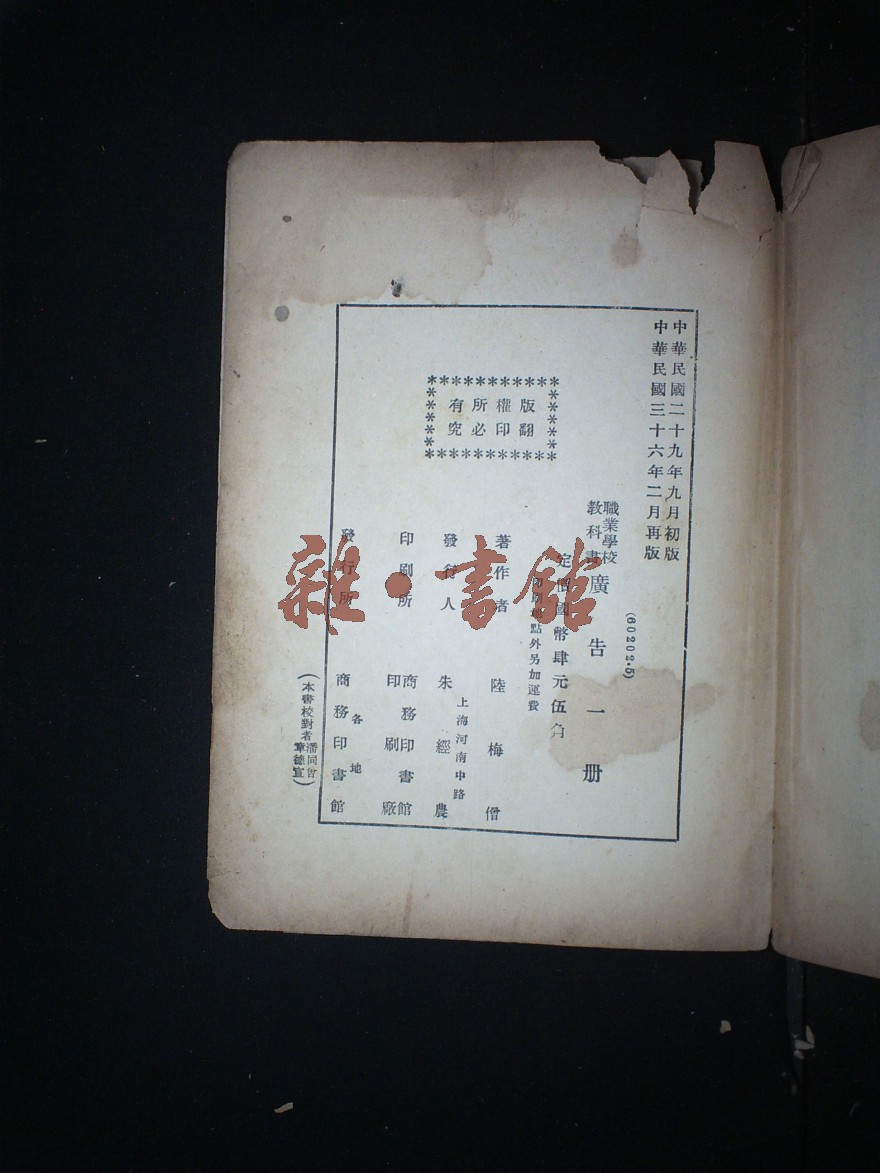 中華民國二十九年九月初版
中華民國三十六年二月再版
(60202·5)
職業學校
教科書
廣告一册
定價國幣肆元伍角
印刷地點外另加運費
版權所有
翻印必究
著作者 陸梅僧
發行人 朱經農
上海河南中路
印刷所 商務印書館
印刷廠
發行所 各地
商務印書館
(本書校對者潘同曾
章德宣)
雜·書館